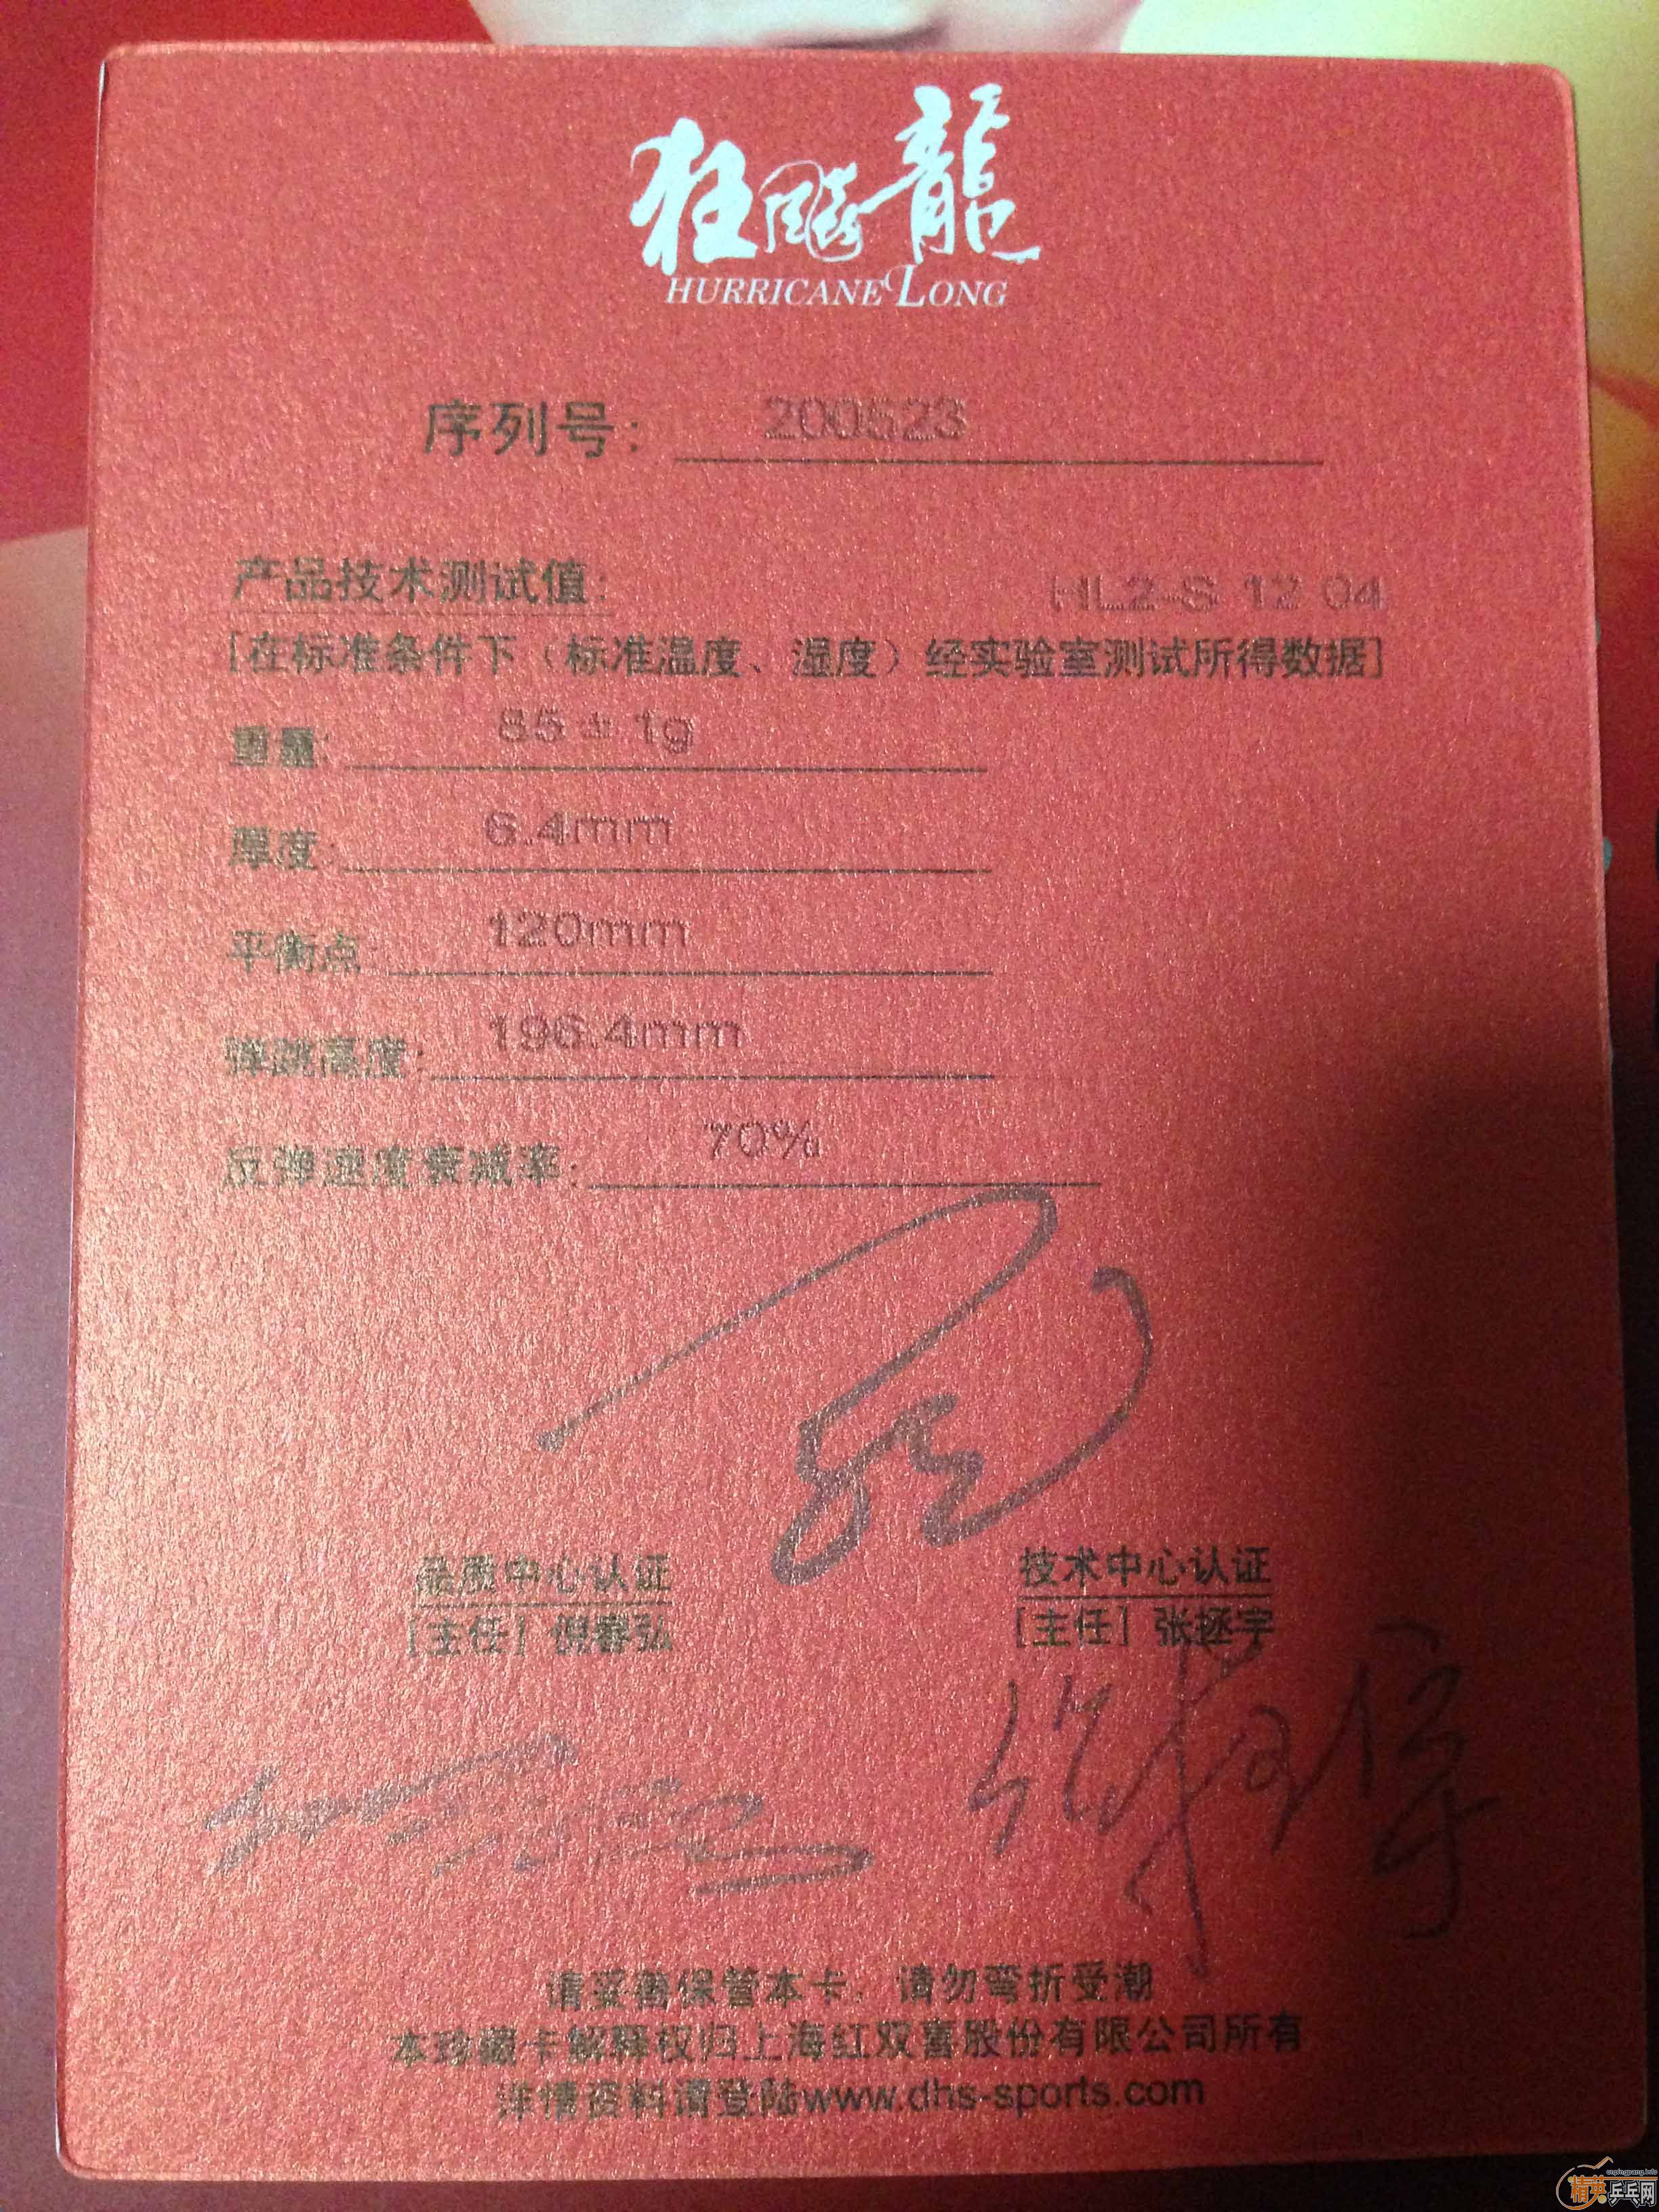 狂飚龍
HURRICANE LONG
序列号: 200523
产品技术测试值: HL2-S 12 04
[在标准条件下（标准温度、湿度）经实验室测试所得数据]
重量: 85 ± 1g
厚度: 6.4mm
平衡点: 120mm
弹跳高度: 196.4mm
反弹速度衰减率: 70%
品质中心认证 技术中心认证
[主任] 倪春弘 [主任] 张拯宇
请妥善保管本卡，请勿弯折受潮
本珍藏卡解释权归上海红双喜股份有限公司所有
详情资料请登陆www.dhs-sports.com
cnpingpang.info
精英乒乓网